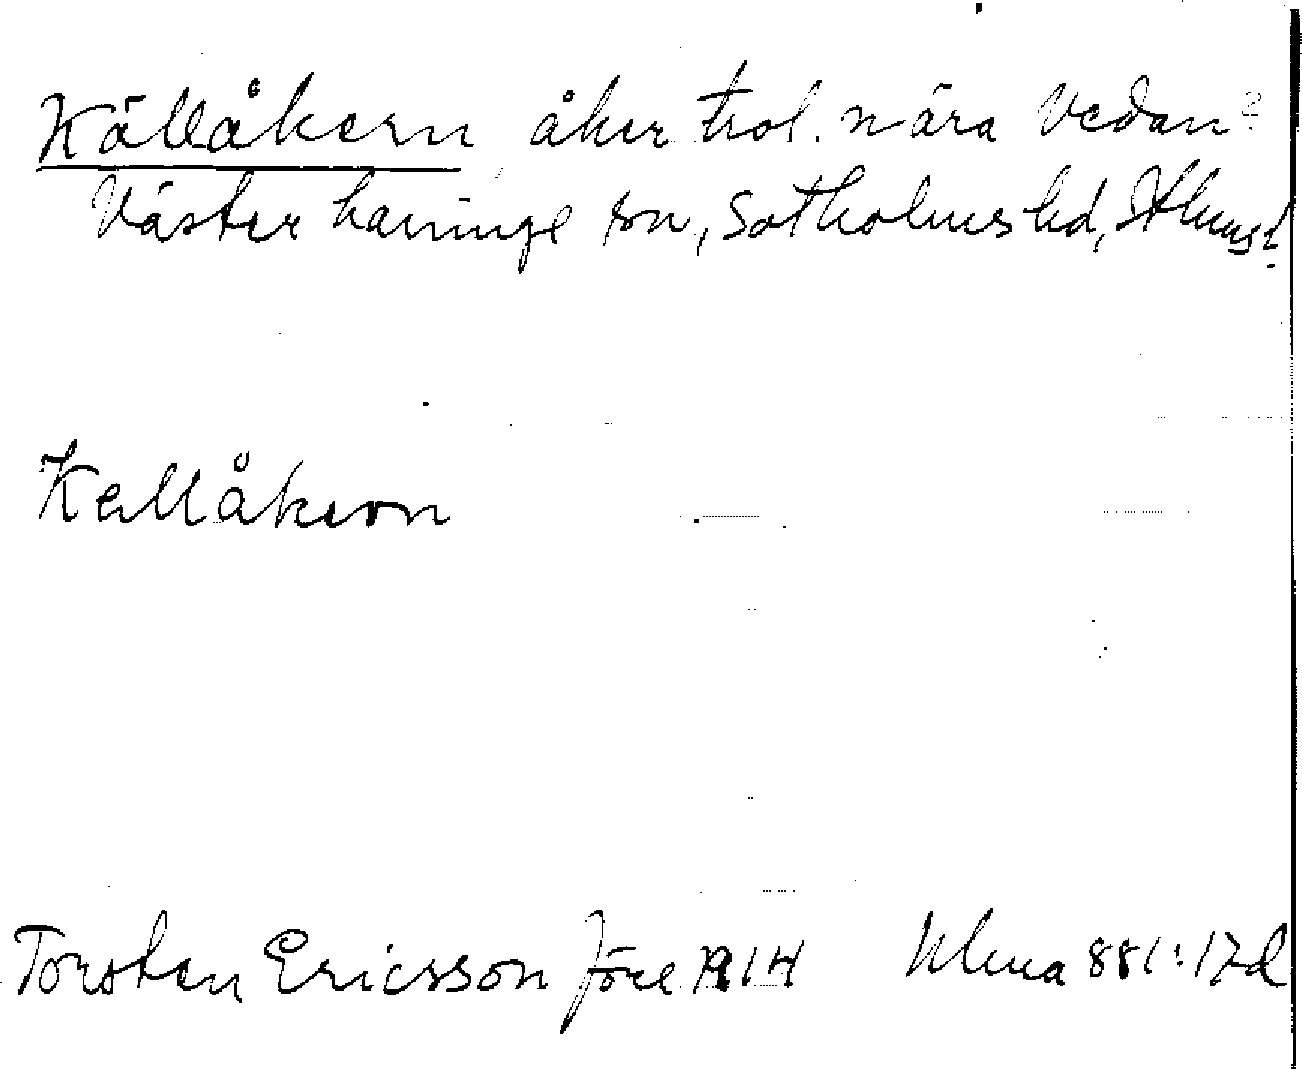 Källåkern åker trol. nära Vedan?
Västerhaninge sn, Sotholms hd, Sthms l.
Kellåkern
Torsten Ericsson före 1914 Ulma 881:17d